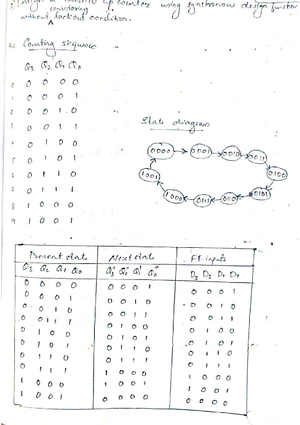 up counter using synchronous design
considering
without lockout condition.
Counting sequence
Q3 Q2 Q1 Q0
0 0 0 0 0
1 0 0 0 1
2 0 0 1 0
3 0 0 1 1
4 0 1 0 0
5 0 1 0 1
6 0 1 1 0
7 0 1 1 1
8 1 0 0 0
9 1 0 0 1
State diagram
0000 0001 0010 0011
0100
1001
1000 0111 0101
Present state Next state FF inputs
Q3 Q2 Q1 Q0 Q3+ Q2+ Q1+ Q0+ D3 D2 D1 D0
0 0 0 0 0 0 0 1 0 0 0 1
0 0 0 1 0 0 1 0 0 0 1 0
0 0 1 0 0 0 1 1 0 0 1 1
0 1 0 0 0 1 0 0
0 1 0 0 0 1 0 1 0 1 0 1
0 1 0 1 0 1 1 0 0 1 1 0
0 1 1 0 0 1 1 1 0 1 1 1
0 1 1 1 1 0 0 0 1 0 0 0
1 0 0 0 1 0 0 1 1 0 0 1
1 0 0 1 0 0 0 0 0 0 0 0